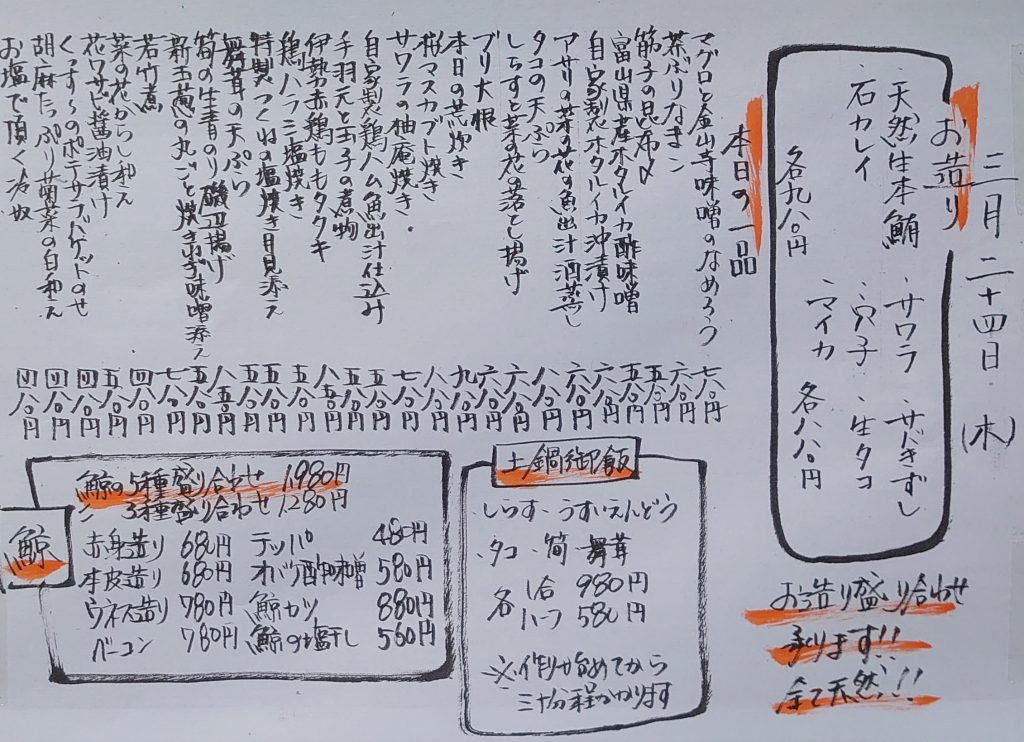 三月二十四日(木)
お造り
・天然生本鮪
・石カレイ
各九八〇円
・サワラ・サバきずし
・穴子・生タコ
・マイカ
各八八〇円
お造り盛り合わせ
承ります!!
全て天然!!!
本日の一品
マグロと金山寺味噌のなめろう 七八〇円
茶ぶりなまこ 六八〇円
筋子の昆布〆 五八〇円
富山県産ホタルイカ酢味噌
自家製ホタルイカ沖漬け
アサリの菜の花の魚出汁酒蒸し
タコの天ぷら
しらすと菜の花の落し揚げ
ブリ大根
本日の荒炊き
桜マスカブト焼き
サワラの柚庵焼き
自家製鶏ハム魚出汁仕込み
手羽元と玉子の煮物
伊勢赤鶏ももタタキ
鶏ハラミ塩焼き
特製つくねの塩焼き月見添え
舞茸の天ぷら
筍の生青のり磯辺揚げ
新玉葱の丸ごと焼きねぎ味噌添え
若竹煮 七八〇円
菜の花からし和え 四八〇円
花ワサビ醤油漬け 五八〇円
くっすーのポテサラバケットのせ 四八〇円
胡麻たっぷり菊菜の白和え 四八〇円
お塩で頂く冷奴 四八〇円
土鍋御飯
・しらす・うすいえんどう
・タコ・筍・舞茸
各 1合 980円
ハーフ 580円
※作り始めてから
三十分程かかります
鯨
鯨の5種盛り合わせ 1,980円
〃 3種盛り合わせ 1,280円
赤身造り 680円 テッパ 480円
本皮造り 680円 オバケ酢味噌 580円
ウネス造り 780円 鯨カツ 880円
ベーコン 780円 鯨の塩干し 560円